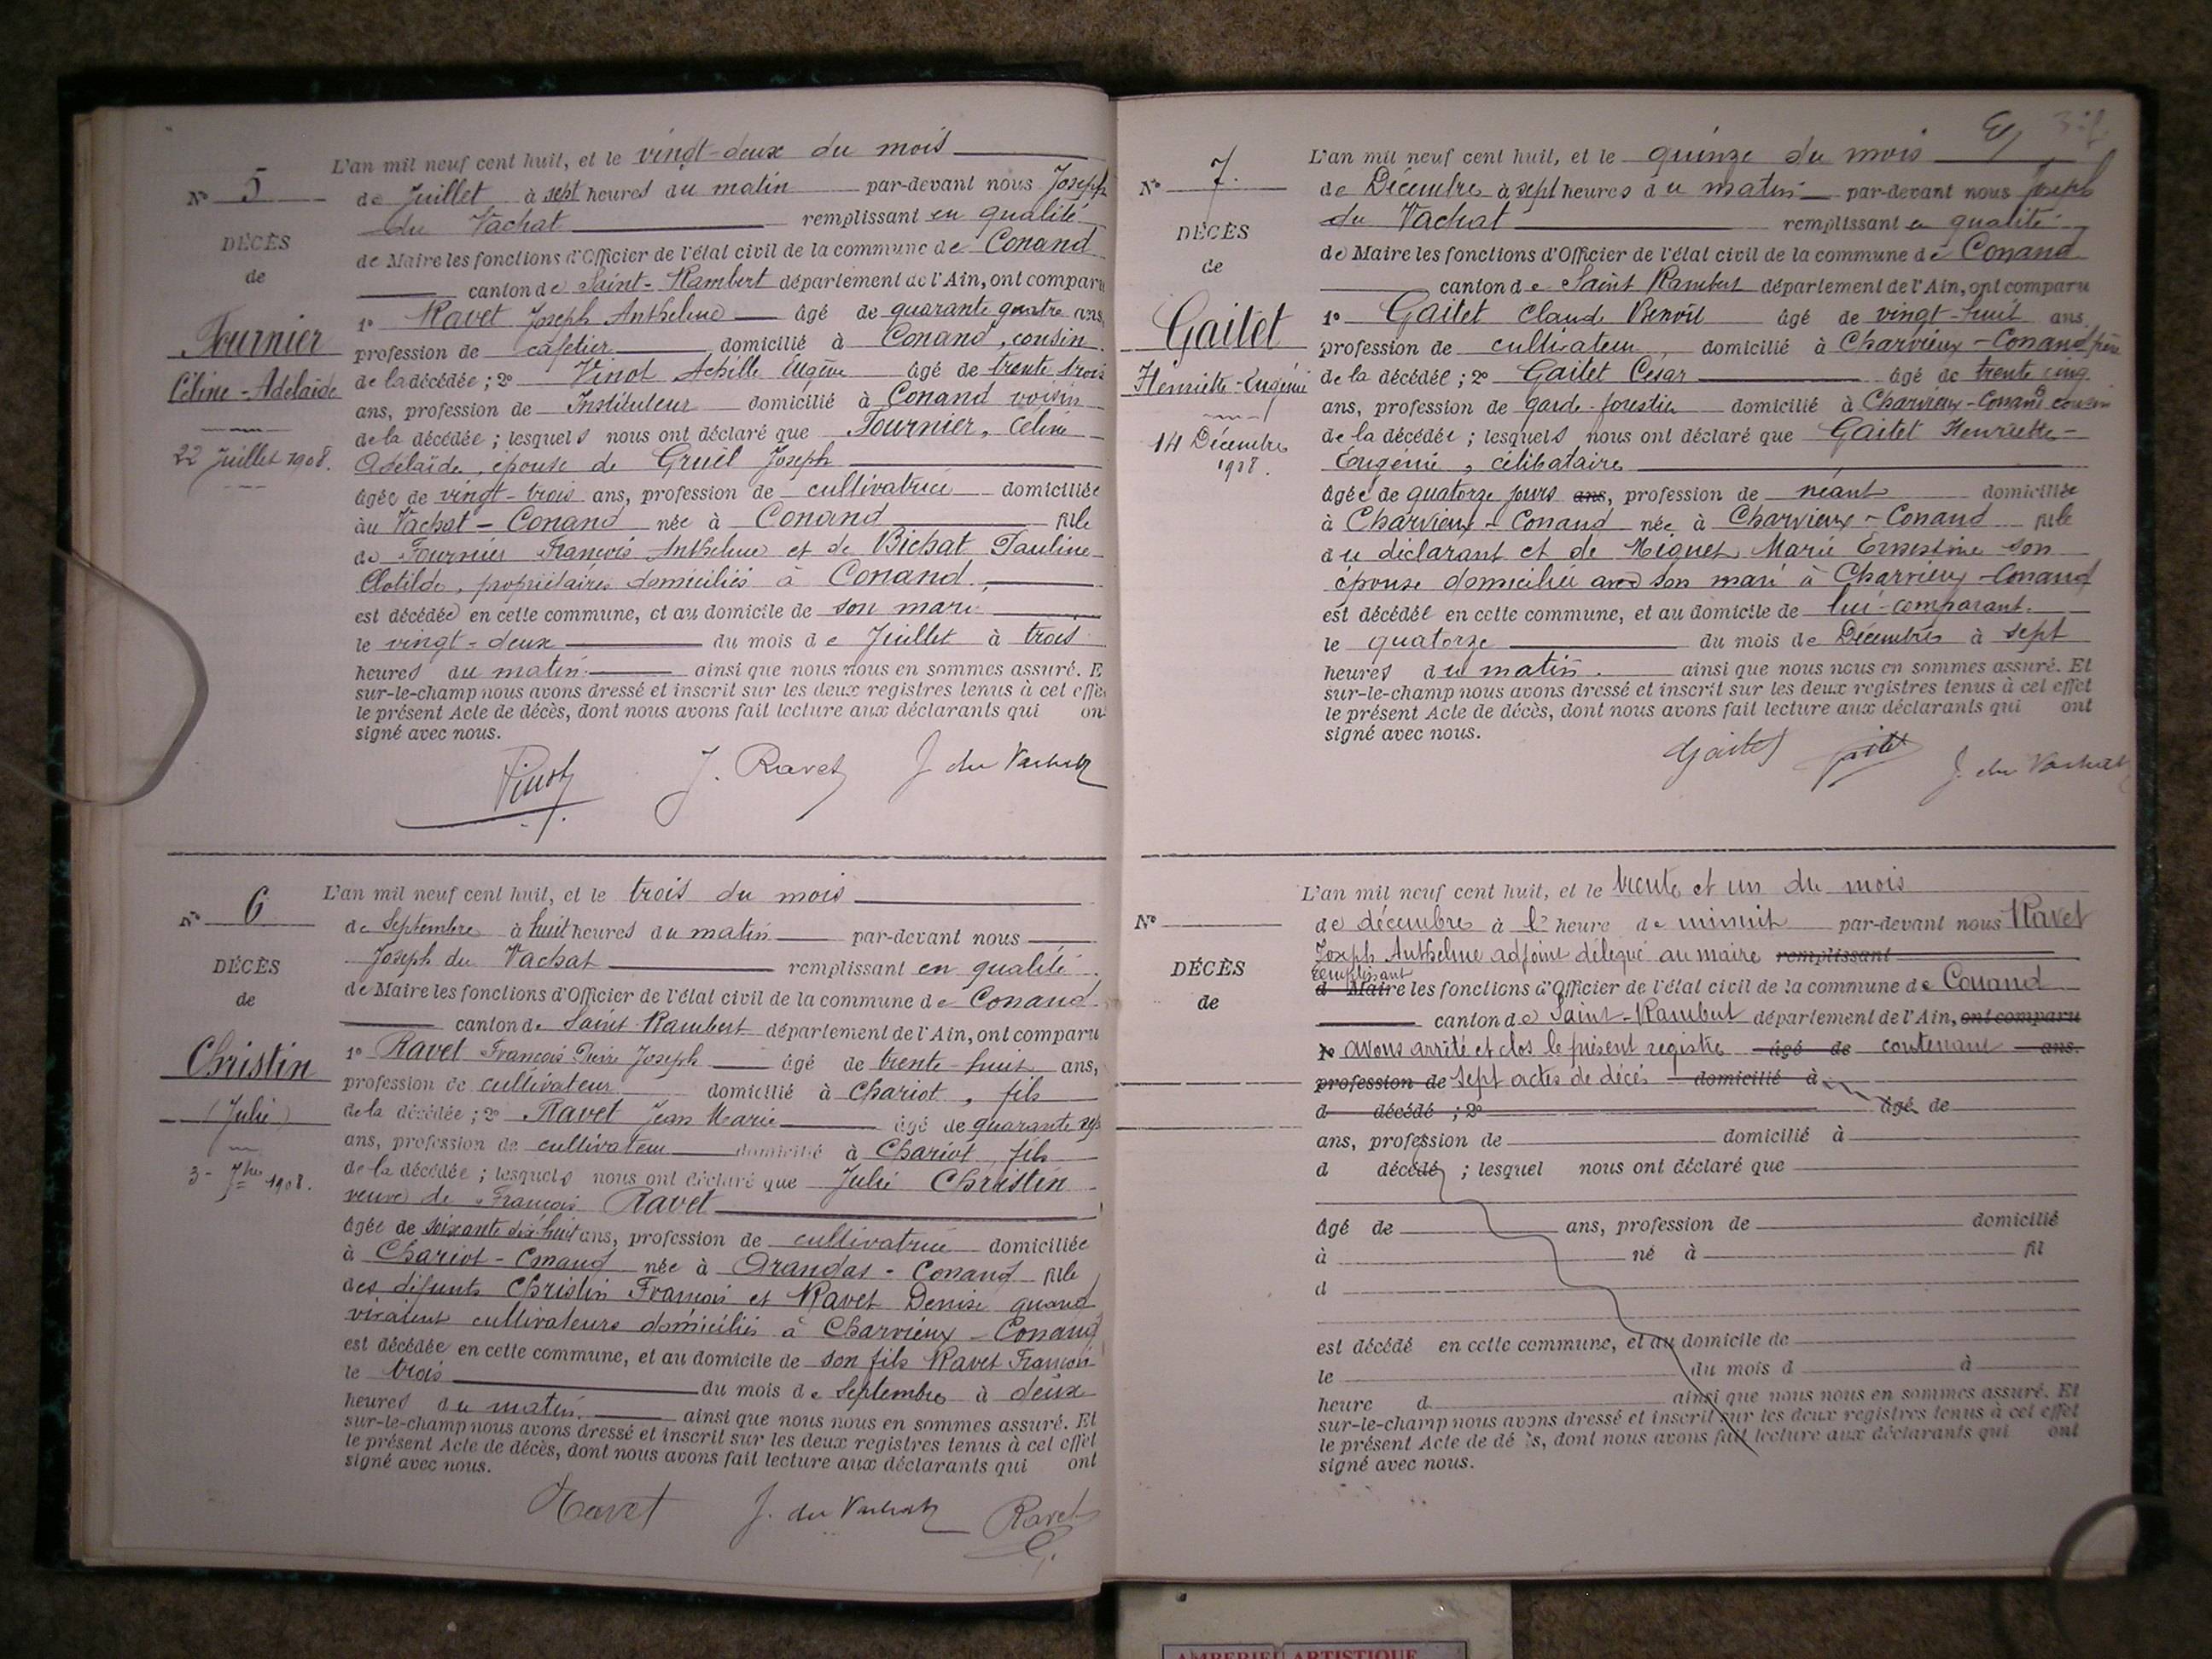 L'an mil neuf cent huit, et le vingt-deux du mois
N° 5
de Juillet à sept heures du matin par-devant nous Joseph
du Vachat remplissant en qualité
DÉCÈS
de Maire les fonctions d'Officier de l'état civil de la commune de Conand
de
canton de Saint-Rambert département de l'Ain, ont comparu
1° Ravet Joseph Anthelme âgé de quarante quatre ans,
Fournier
profession de cafetier domicilié à Conand, cousin
Céline-Adelaïde
de la décédée ; 2° Vinot Achille Eugène âgé de trente trois
ans, profession de Instituteur domicilié à Conand voisin
de la décédée ; lesquels nous ont déclaré que Fournier, Céline
22 Juillet 1908.
Adelaïde, épouse de Gruel Joseph
âgée de vingt-trois ans, profession de cultivatrice domiciliée
au Vachat-Conand née à Conand fille
de Fournier François Anthelme et de Bichat Pauline
Clotilde, propriétaires domiciliés à Conand.
est décédée en cette commune, et au domicile de son mari
le vingt-deux du mois de Juillet à trois
heures du matin. ainsi que nous nous en sommes assuré. E
sur-le-champ nous avons dressé et inscrit sur les deux registres tenus à cet effe
le présent Acte de décès, dont nous avons fait lecture aux déclarants qui on
signé avec nous.
Vinot J. Ravet J du Vachat
L'an mil neuf cent huit, et le trois du mois
N° 6
de Septembre à huit heures du matin par-devant nous
Joseph du Vachat remplissant en qualité
DÉCÈS
de Maire les fonctions d'Officier de l'état civil de la commune de Conand
de
canton de Saint-Rambert département de l'Ain, ont comparu
1° Ravet François Pierre Joseph âgé de trente-huit ans,
Christin
profession de cultivateur domicilié à Chariot, fils
(Julie)
de la décédée ; 2° Ravet Jean Marie âgé de quarante
ans, profession de cultivateur domicilié à Chariot, fils
3 - 7bre 1908.
de la décédée ; lesquels nous ont déclaré que Julie Christin
veuve de François Ravet
âgée de soixante dix-huit ans, profession de cultivatrice domiciliée
à Chariot-Conand née à Arandas-Conand fille
des défunts Christin François et Ravet Denise quand
vivaient cultivateurs domiciliés à Charvieux-Conand
est décédée en cette commune, et au domicile de son fils Ravet François
le trois du mois de Septembre à deux
heures du matin. ainsi que nous nous en sommes assuré. Et
sur-le-champ nous avons dressé et inscrit sur les deux registres tenus à cet effet
le présent Acte de décès, dont nous avons fait lecture aux déclarants qui ont
signé avec nous.
Ravet J. du Vachat Ravet
L'an mil neuf cent huit, et le quinze du mois
N° 7.
de Décembre à sept heures du matin par-devant nous Joseph
du Vachat remplissant en qualité
DÉCÈS
de Maire les fonctions d'Officier de l'état civil de la commune de Conand
de
canton de Saint Rambert département de l'Ain, ont comparu
1° Gaitet Claude Benoît âgé de vingt-huit ans.
Gaitet
profession de cultivateur, domicilié à Charvieux-Conand père
Henriette-Eugénie
de la décédée ; 2° Gaitet Cesar âgé de trente cinq
ans, profession de garde-forestier domicilié à Charvieux-Conand cousin
14 Décembre
de la décédée ; lesquels nous ont déclaré que Gaitet Henriette-
1908.
Eugénie, célibataire
âgée de quatorze jours ans, profession de néant domiciliée
à Charvieux-Conand née à Charvieux-Conand fille
du déclarant et de Miguet Marie Ernestine son
épouse domiciliée avec son mari à Charvieux-Conand
est décédée en cette commune, et au domicile de lui-comparant.
le quatorze du mois de Décembre à sept
heures du matin. ainsi que nous nous en sommes assuré. Et
sur-le-champ nous avons dressé et inscrit sur les deux registres tenus à cet effet
le présent Acte de décès, dont nous avons fait lecture aux déclarants qui ont
signé avec nous.
Gaitet Gaitet J. du Vachat
L'an mil neuf cent huit, et le trente et un du mois
N°
de décembre à l' heure de minuit par-devant nous Ravet
Joseph Anthelme adjoint délégué au maire remplissant
DÉCÈS
remplissant
d Maire les fonctions d'Officier de l'état civil de la commune de Conand
de
canton de Saint-Rambert département de l'Ain, ont comparu
1° avons arrêté et clos le présent registre âgé de contenant ans.
profession de sept actes de décès domicilié à
d décédé ; 2° âgé de
ans, profession de domicilié à
d décédé ; lesquel nous ont déclaré que
âgé de ans, profession de domicilié
à né à fil
d
est décédé en cette commune, et au domicile de
le du mois d à
heure d ainsi que nous nous en sommes assuré. Et
sur-le-champ nous avons dressé et inscrit sur les deux registres tenus à cet effet
le présent Acte de dé s, dont nous avons fait lecture aux déclarants qui ont
signé avec nous.
AMBERIEU ARTISTIQUE